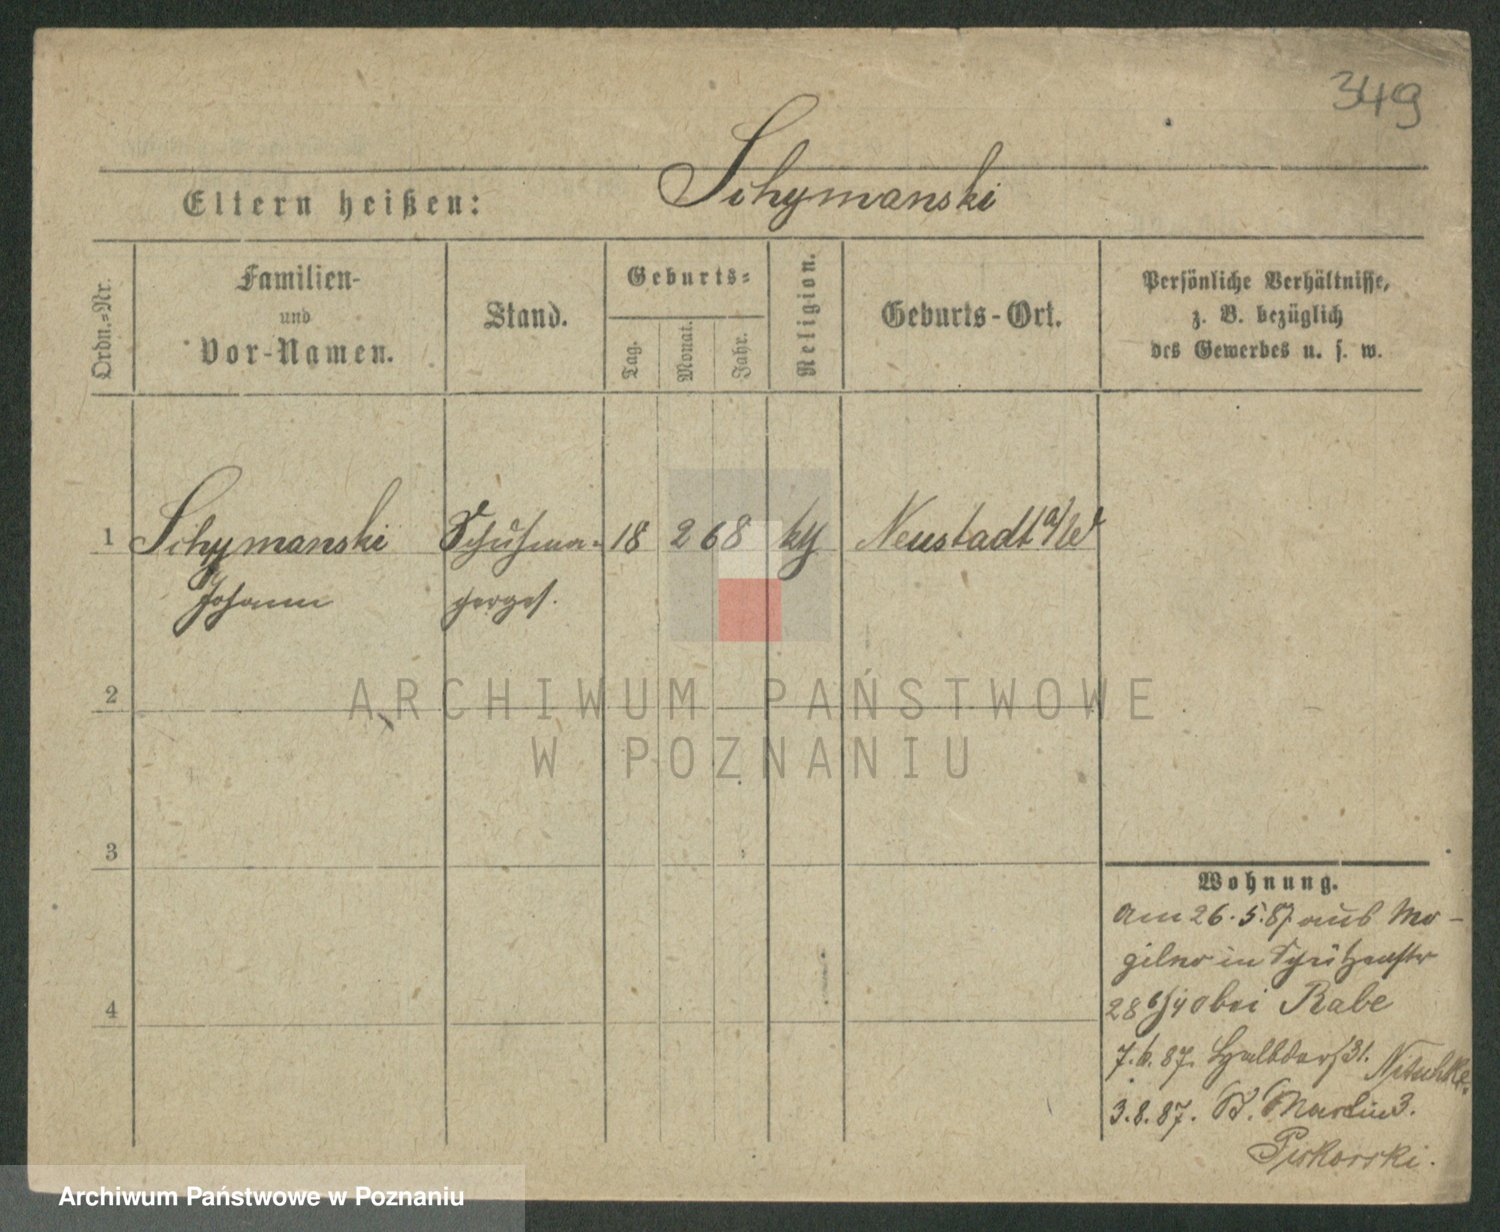 349
Eltern heißen: Schymanski
Ordn.=Nr.
Familien-
und
Vor-Namen.
Stand.
Geburts=
Tag.
Monat.
Jahr.
Religion.
Geburts-Ort.
Persönliche Verhältnisse,
z. B. bezüglich
des Gewerbes u. s. w.
1 Schymanski Schuhma- 18 2 68 Neustadt a/W
Johann cherges.
2
ARCHIWUM PAŃSTWOWE
W POZNANIU
3
Wohnung.
am 26.5.87 aus Mo-
gilno in Schützenstr
28 bei Rabe
4
7.6.87. Halbdorf 31. Nitschke.
3.8.87. St. Martin 3.
Piskorski.
Archiwum Państwowe w Poznaniu